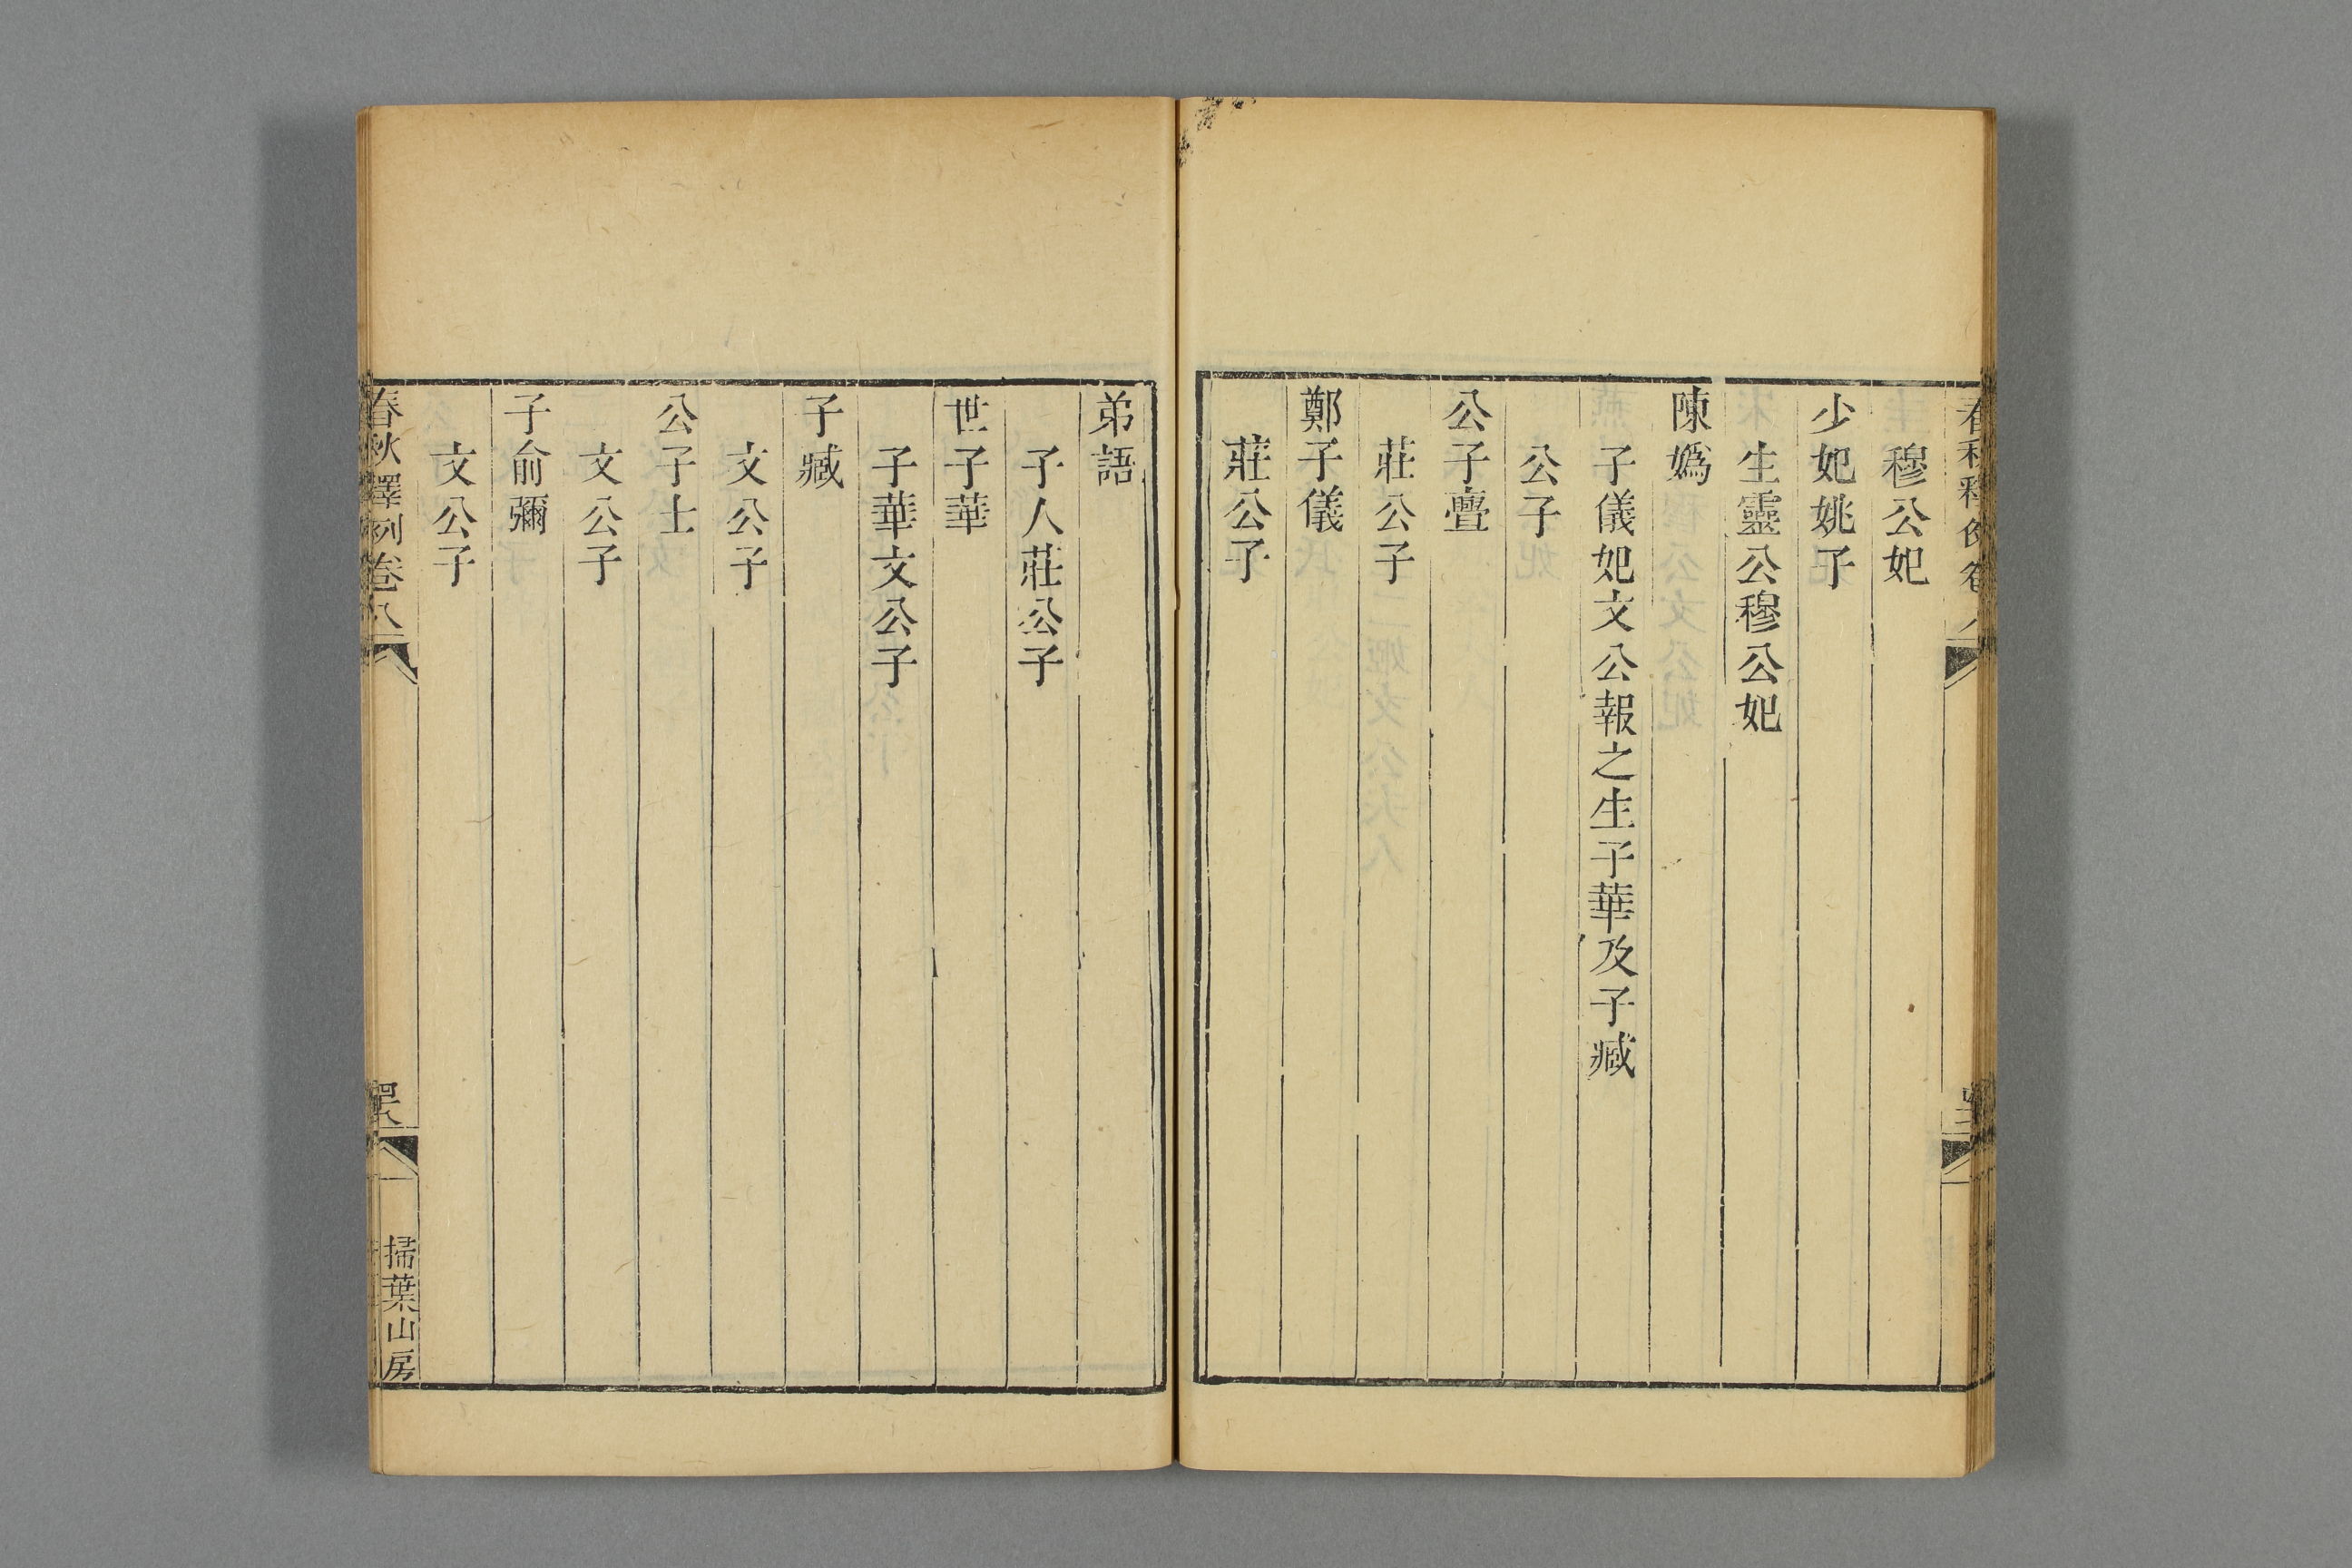 春秋釋例卷八
穆公妃
少妃姚子
生靈公穆公妃
陳媯
子儀妃文公報之生子華及子臧
公子
公子亹
莊公子
鄭子儀
莊公子
弟語
子人莊公子
世子華
子華文公子
子臧
文公子
公子士
文公子
子俞彌
文公子
春秋釋例卷八
掃葉山房